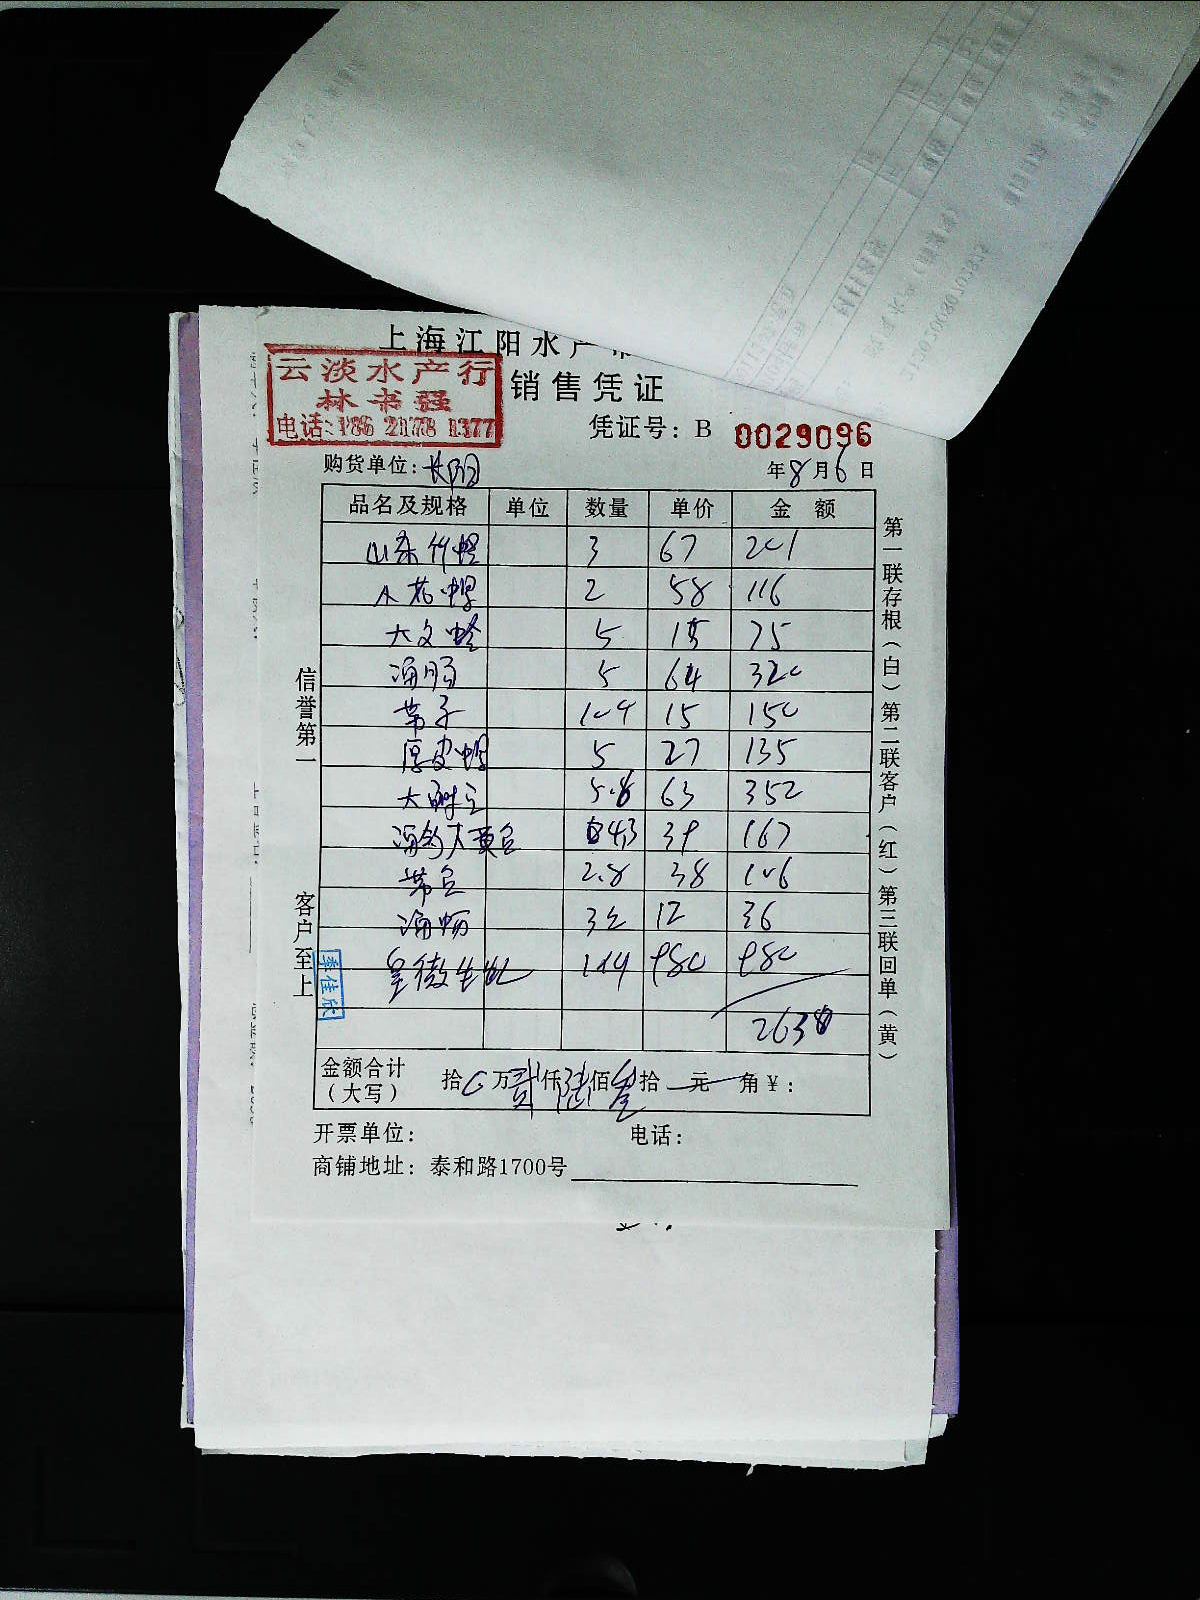 上海江阳水产
云淡水产行
林书强
电话:186 2178 1377
销售凭证
凭证号: B 0029096
购货单位: 长阳 年8月6日
品名及规格 单位 数量 单价 金额
山东竹蛏 3 67 201
小花螺 2 58 116
大文蛤 5 15 75
海肠 5 64 320
10.4 15 150
厚皮 5 27 135
5.8 63 352
4.3 39 167
2.8 38 106
12 36
980 980
2638
金额合计
(大写) 拾 0 万 贰 仟 陆 佰 叁 拾 元 角 ¥:
开票单位: 电话:
商铺地址: 泰和路1700号
信誉第一
客户至上
李佳欣
第一联存根(白)第二联客户(红)第三联回单(黄)